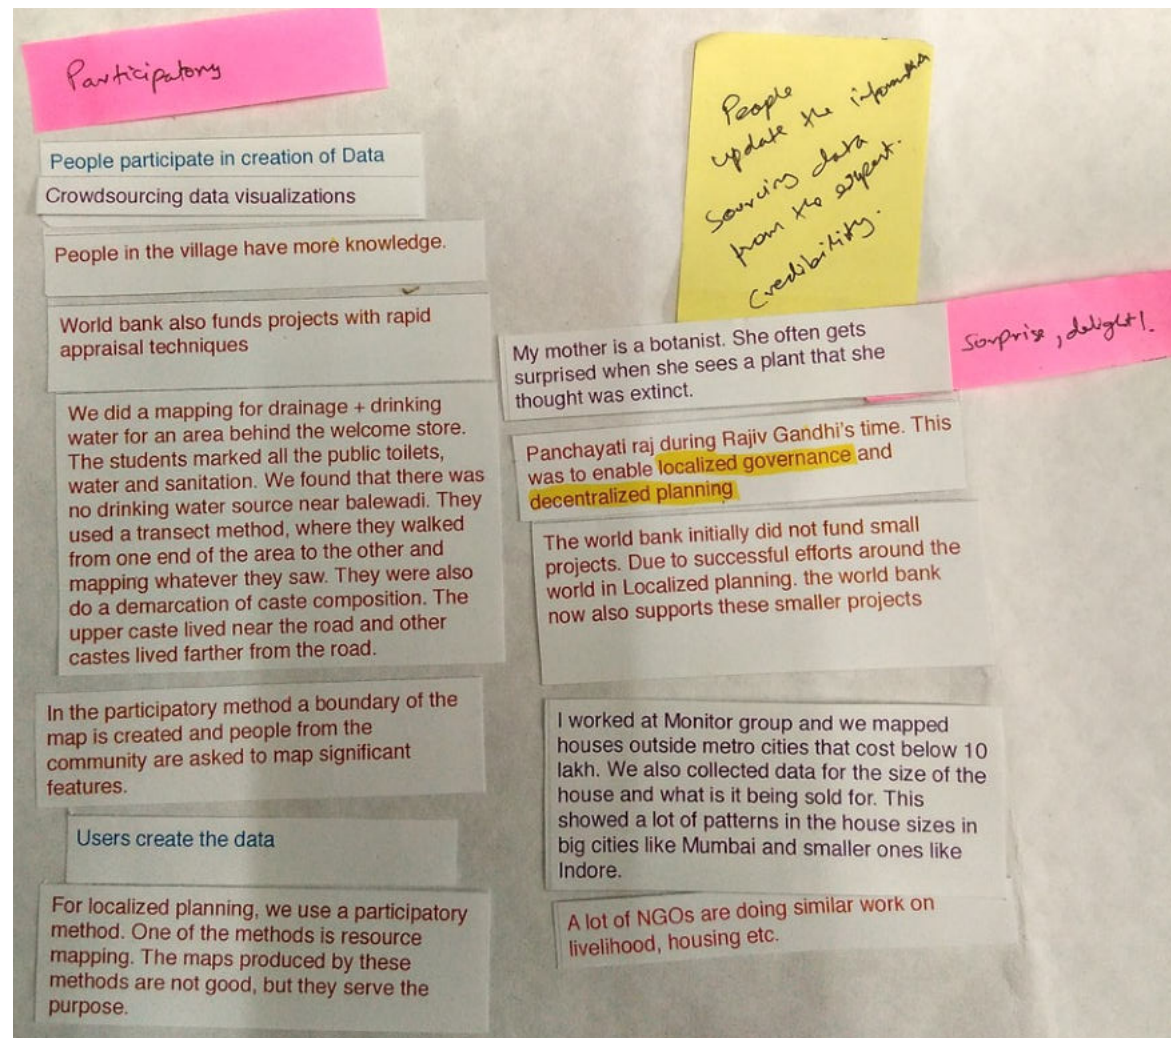 Participatory
People participate in creation of Data
Crowdsourcing data visualizations
People in the village have more knowledge.
World bank also funds projects with rapid
appraisal techniques
We did a mapping for drainage + drinking
water for an area behind the welcome store.
The students marked all the public toilets,
water and sanitation. We found that there was
no drinking water source near balewadi. They
used a transect method, where they walked
from one end of the area to the other and
mapping whatever they saw. They were also
do a demarcation of caste composition. The
upper caste lived near the road and other
castes lived farther from the road.
In the participatory method a boundary of the
map is created and people from the
community are asked to map significant
features.
Users create the data
For localized planning, we use a participatory
method. One of the methods is resource
mapping. The maps produced by these
methods are not good, but they serve the
purpose.
People
update the information
Sourcing data
from the expert.
Credibility.
My mother is a botanist. She often gets
surprised when she sees a plant that she
thought was extinct.
Surprise, delight!
Panchayati raj during Rajiv Gandhi's time. This
was to enable localized governance and
decentralized planning
The world bank initially did not fund small
projects. Due to successful efforts around the
world in Localized planning. the world bank
now also supports these smaller projects
I worked at Monitor group and we mapped
houses outside metro cities that cost below 10
lakh. We also collected data for the size of the
house and what is it being sold for. This
showed a lot of patterns in the house sizes in
big cities like Mumbai and smaller ones like
Indore.
A lot of NGOs are doing similar work on
livelihood, housing etc.